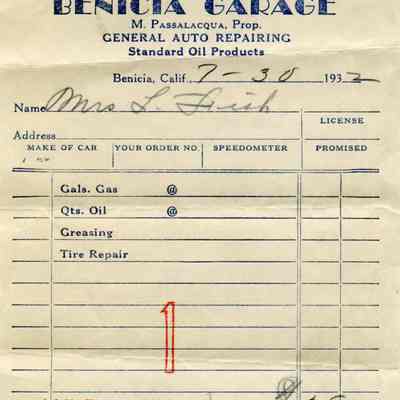 BENICIA GARAGE
M. PASSALACQUA, Prop.
GENERAL AUTO REPAIRING
Standard Oil Products
Benicia, Calif. 7-30 1932
Name Mrs L.
LICENSE
Address
MAKE OF CAR YOUR ORDER NO. SPEEDOMETER PROMISED
Gals. Gas @
Qts. Oil @
Greasing
Tire Repair
1